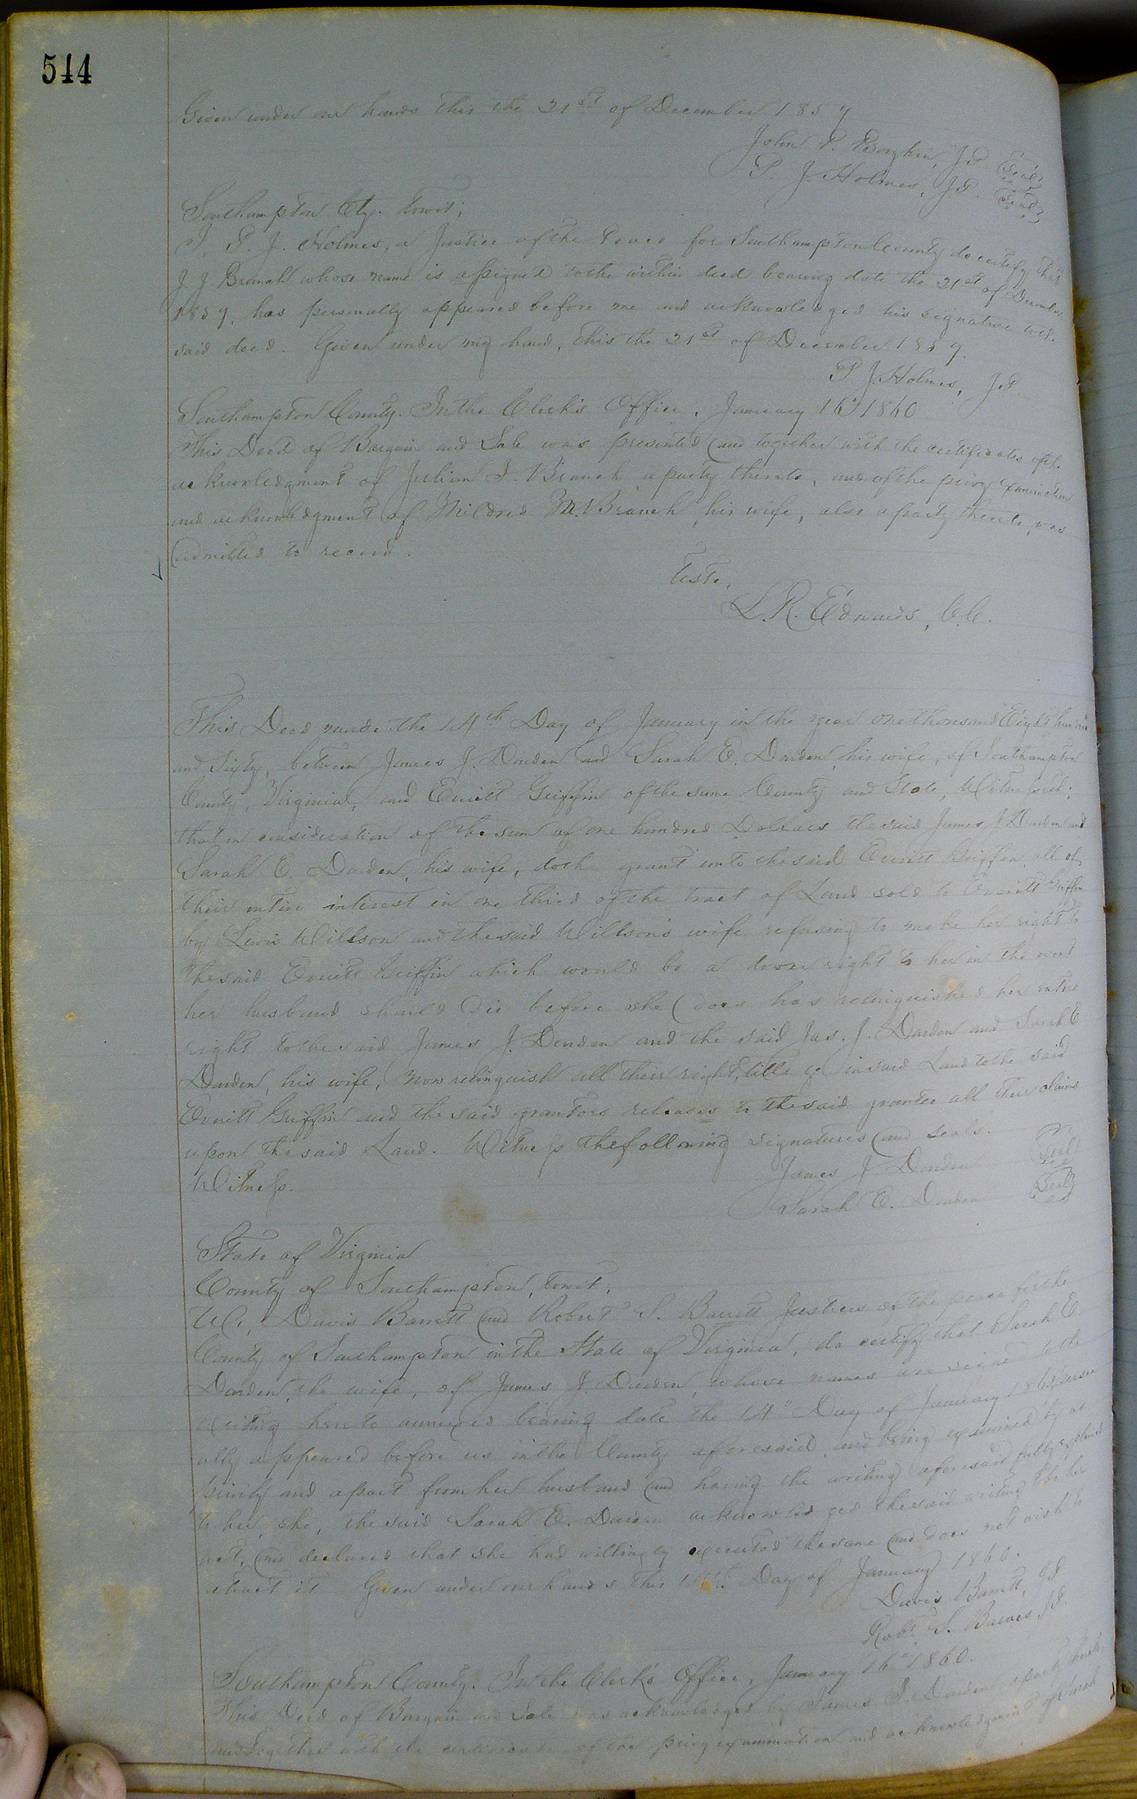 544
Given under our hands this the 21st of December 1859
John P. Boykin, J.P. Seal
P. J. Holmes, J.P. Seal
Southampton Cty. Towit;
I, P. J. Holmes, a Justice of the Peace for Southampton County do certify that
J. J. Branch whose name is assigned to the within deed bearing date the 21st of December
1859, has personally appeared before me and acknowledged his signature to
said deed. Given under my hand, this the 21st of December 1859.
P J. Holmes, J.P.
Southampton County. In the Clerk's Office, January 16th 1860
This Deed of Bargain and Sale was presented and together with the certificates of the
acknowledgment of J. Branch a party thereto, and of the privy examination
and acknowledgment of Mildred M. Branch, his wife, also a party thereto, was
admitted to record.
Teste,
L. R. Edwards, C.C.
This Deed made the 14th Day of January in the year one thousand Eight hundred
and Sixty, between James J. Darden and Sarah E. Darden, his wife, of Southampton
County, Virginia, and Everitt Griffin of the same County and State, Witnesseth;
that in consideration of the sum of one hundred Dollars the said James J Darden and
Sarah E. Darden, his wife, doth grant unto the said Everitt Griffin all of
their entire interest in one third of the tract of Land sold to Everitt Griffin
by Lewis Willson and the said Willson's wife refusing to make her right to
the said Everitt Griffin which would be a dower right to her in the event
her husband should die before she does has relinquished her entire
right to the said James J. Darden and the said Jas. J. Darden and Sarah E
Darden, his wife, now relinquish all their right, title &c in said Land to the said
Everitt Griffin and the said grantors releases to the said grantee all their claims
upon the said Land. Witness the following signatures and seals.
James J Darden Seal
Witness.
Sarah E. Darden Seal
State of Virginia
County of Southampton, towit,
We, Davis Barrett and Robert S. Barrett Justices of the peace for the
County of Southampton in the State of Virginia, do certify that Sarah E.
Darden, the wife, of James J Darden, whose names are signed to the
writing hereto annexed bearing date the 14th Day of January
ally appeared before us in the County aforesaid, and being examined by us
privily and apart from her husband and having the writing aforesaid fully explained
to her, she, the said Sarah E. Darden acknowledged the said writing to be her
act, and declared that she had willingly executed the same and does not wish to
retract it Given under our hands this 14th Day of January 1860.
Davis Barrett, J.P.
Robt. S. J.P.
Southampton County. In the Clerk's Office, January 16th 1860.
This Deed of Bargain and Sale was acknowledged by James J. Darden a party thereto,
and together with the certificate of the privy examination and acknowledgment of Sarah